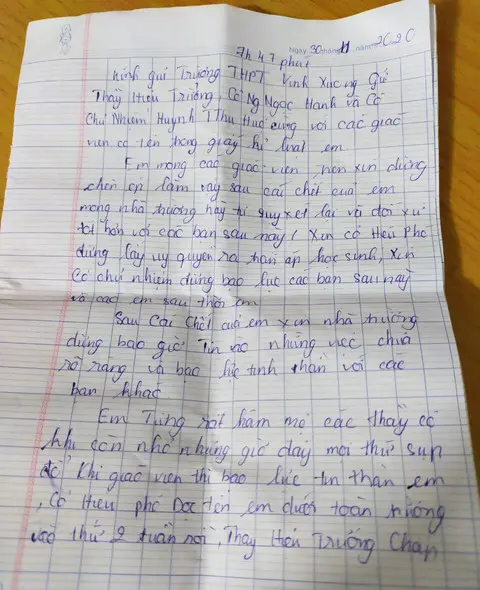 7h 47 phút
Ngày 30 tháng 11 năm 2020
Kính gửi Trường THPT Vĩnh Xương Gửi
Thầy Hiệu Trưởng, Cô Ng Ngọc Hạnh và Cô
Chủ Nhiệm Huỳnh T Thu Huệ cùng với các giáo
viên có tên trong giấy kỉ luật em
Em mong các giáo viên, nên xin đừng
chèn ép làm vậy sau cái chết của em
mong nhà trường hãy tự suy xét lại và đối xử
tốt hơn với các bạn sau này! Xin cô Hiệu Phó
đừng lấy uy quyền ra, hăn áp học sinh, xin
Cô chủ nhiệm đừng bạo lực các bạn sau này
và các em sau thời em
Sau cái chết của em xin nhà trường
đừng bao giờ Tin vào những việc chưa
rõ ràng và bạo lực tinh thần với các
bạn khác
Em Từng rất hâm mộ các thầy cô
khi còn nhỏ nhưng giờ đây mọi thứ sụp
đổ khi giáo viên thì bạo lực tin thần em
, Cô Hiệu phó Đọc tên em dưới toàn trường
vào thứ 2 tuần rồi, Thầy Hiệu Trưởng Chấp